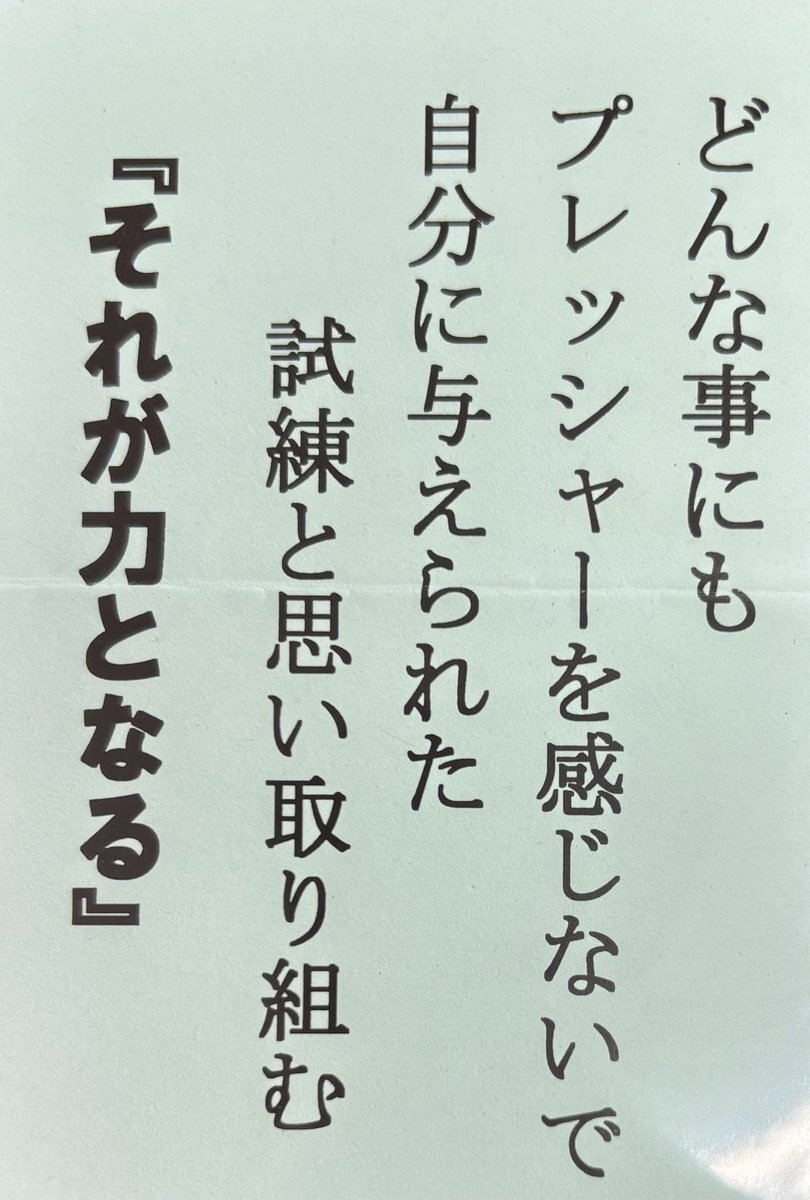 どんな事にも
プレッシャーを感じないで
自分に与えられた
試練と思い取り組む
『それが力となる』